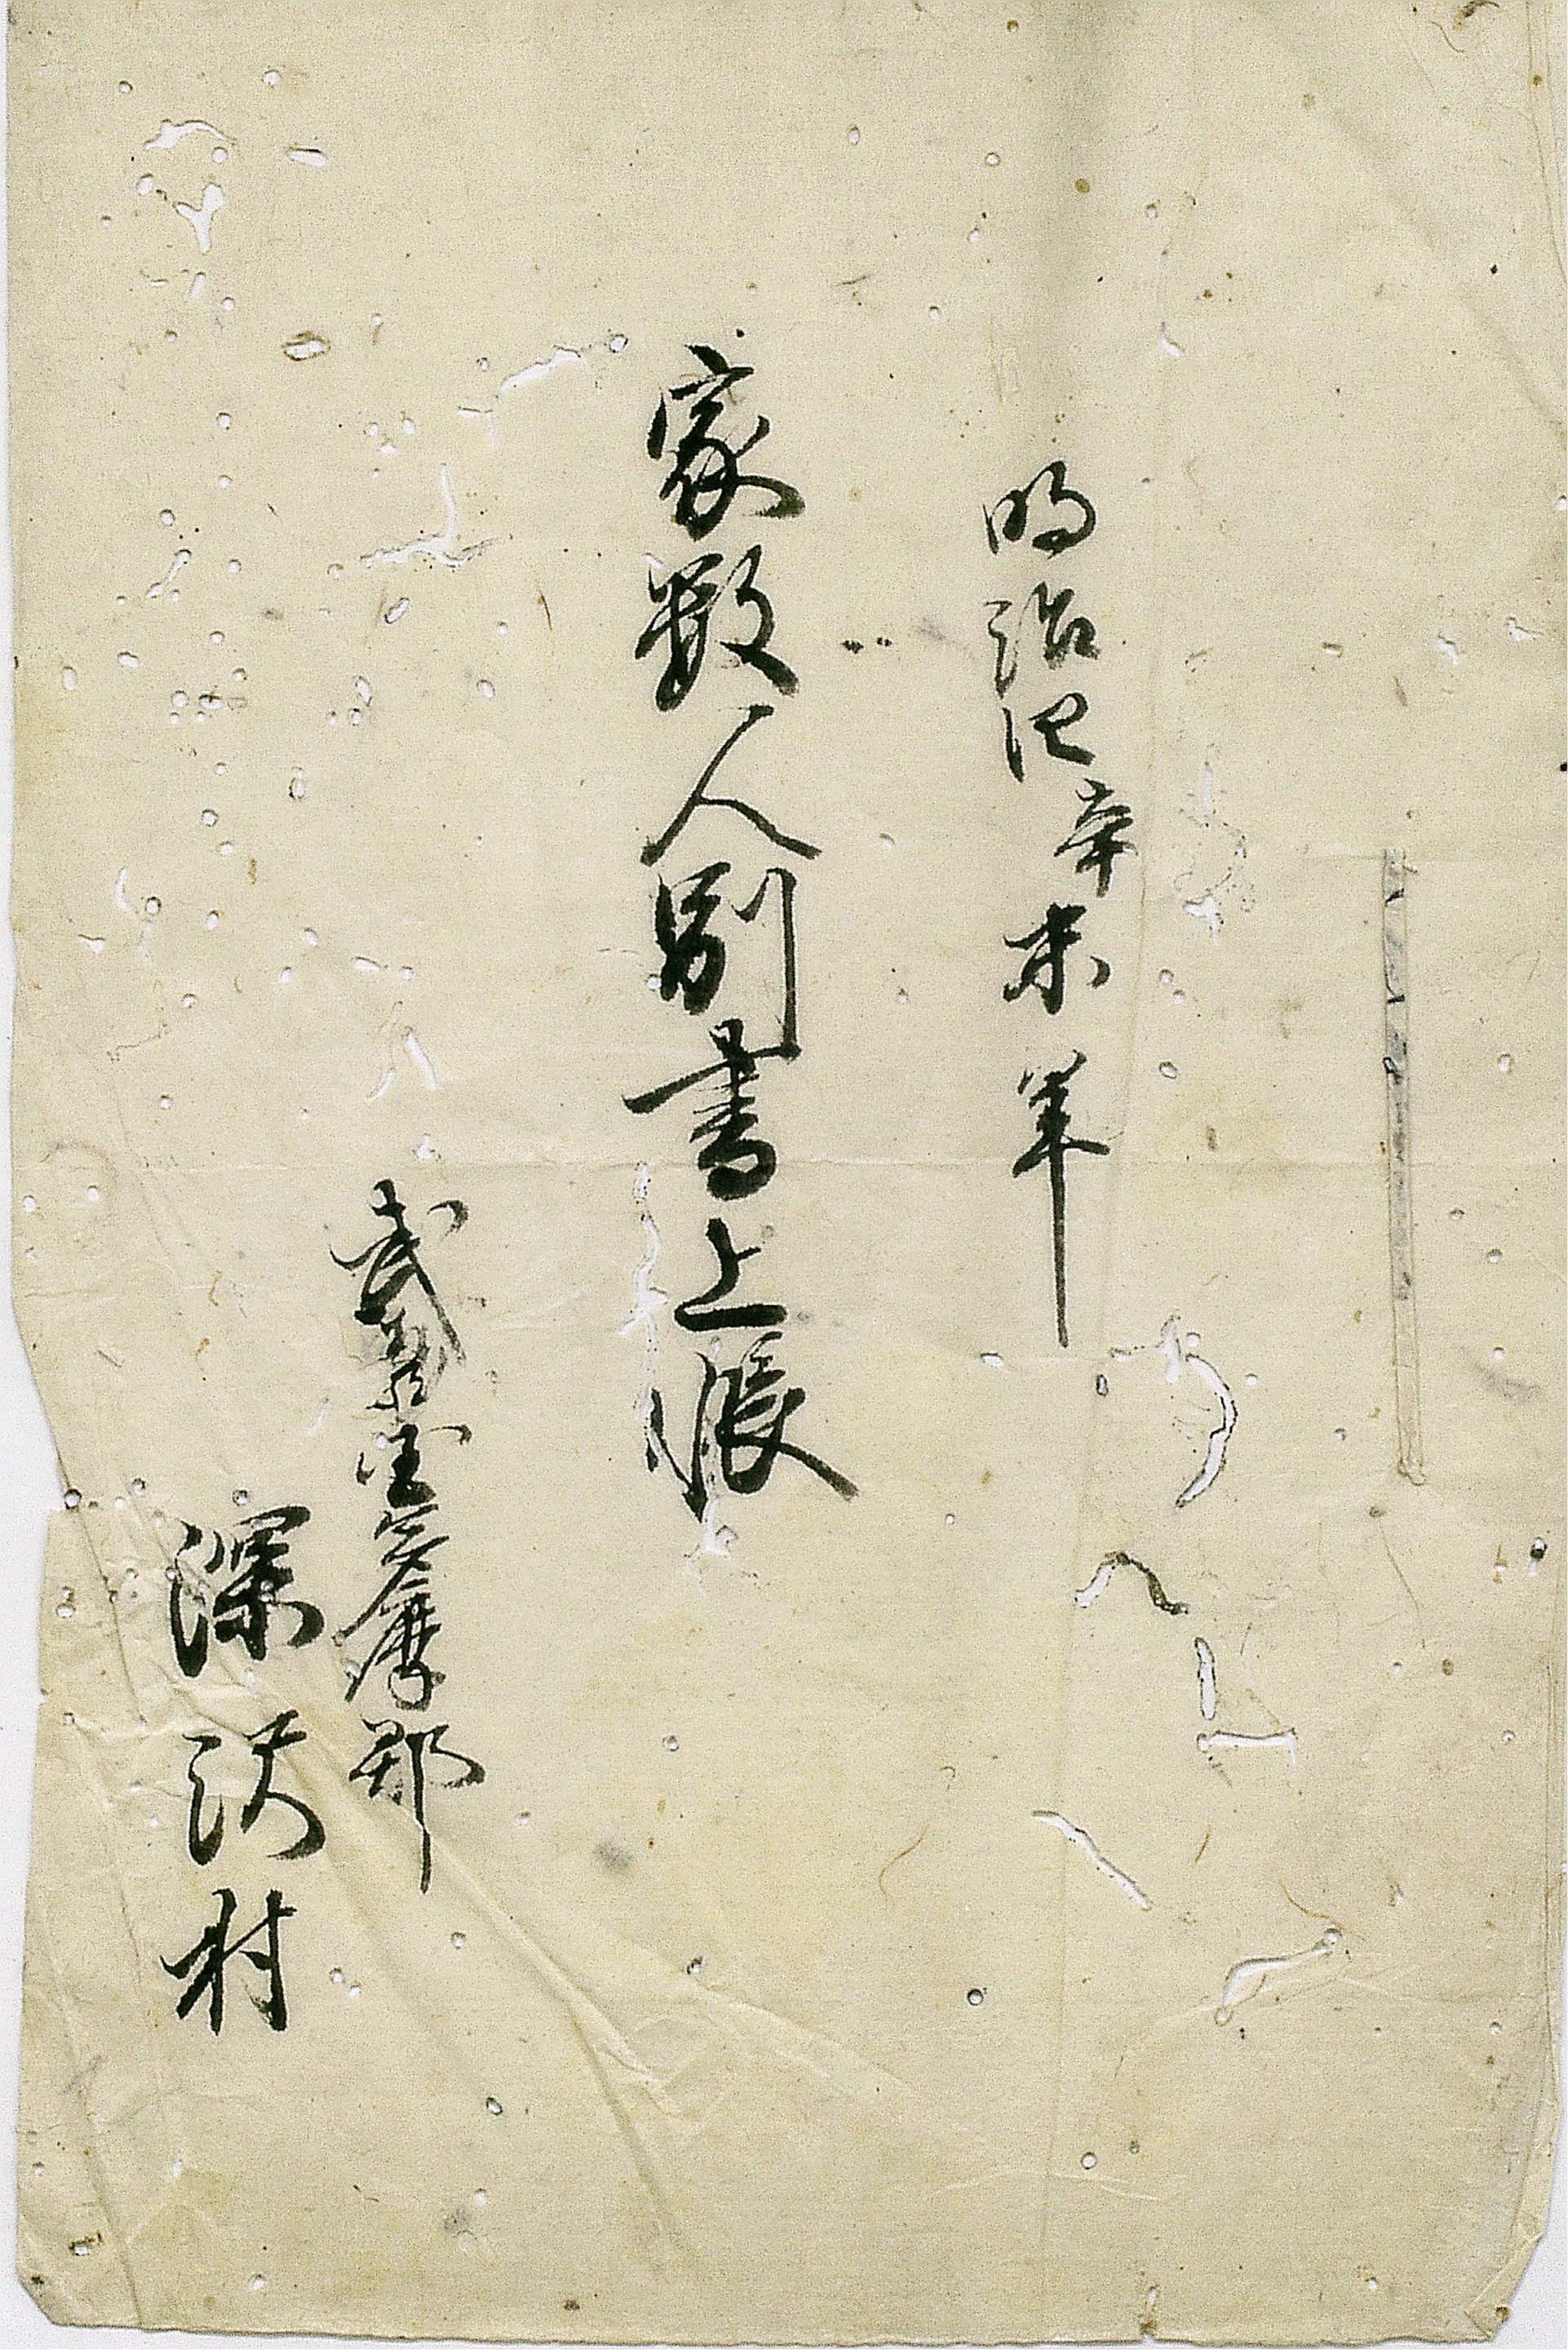 明治四辛未年
家数人別書上帳
武蔵国多摩郡
深沢村